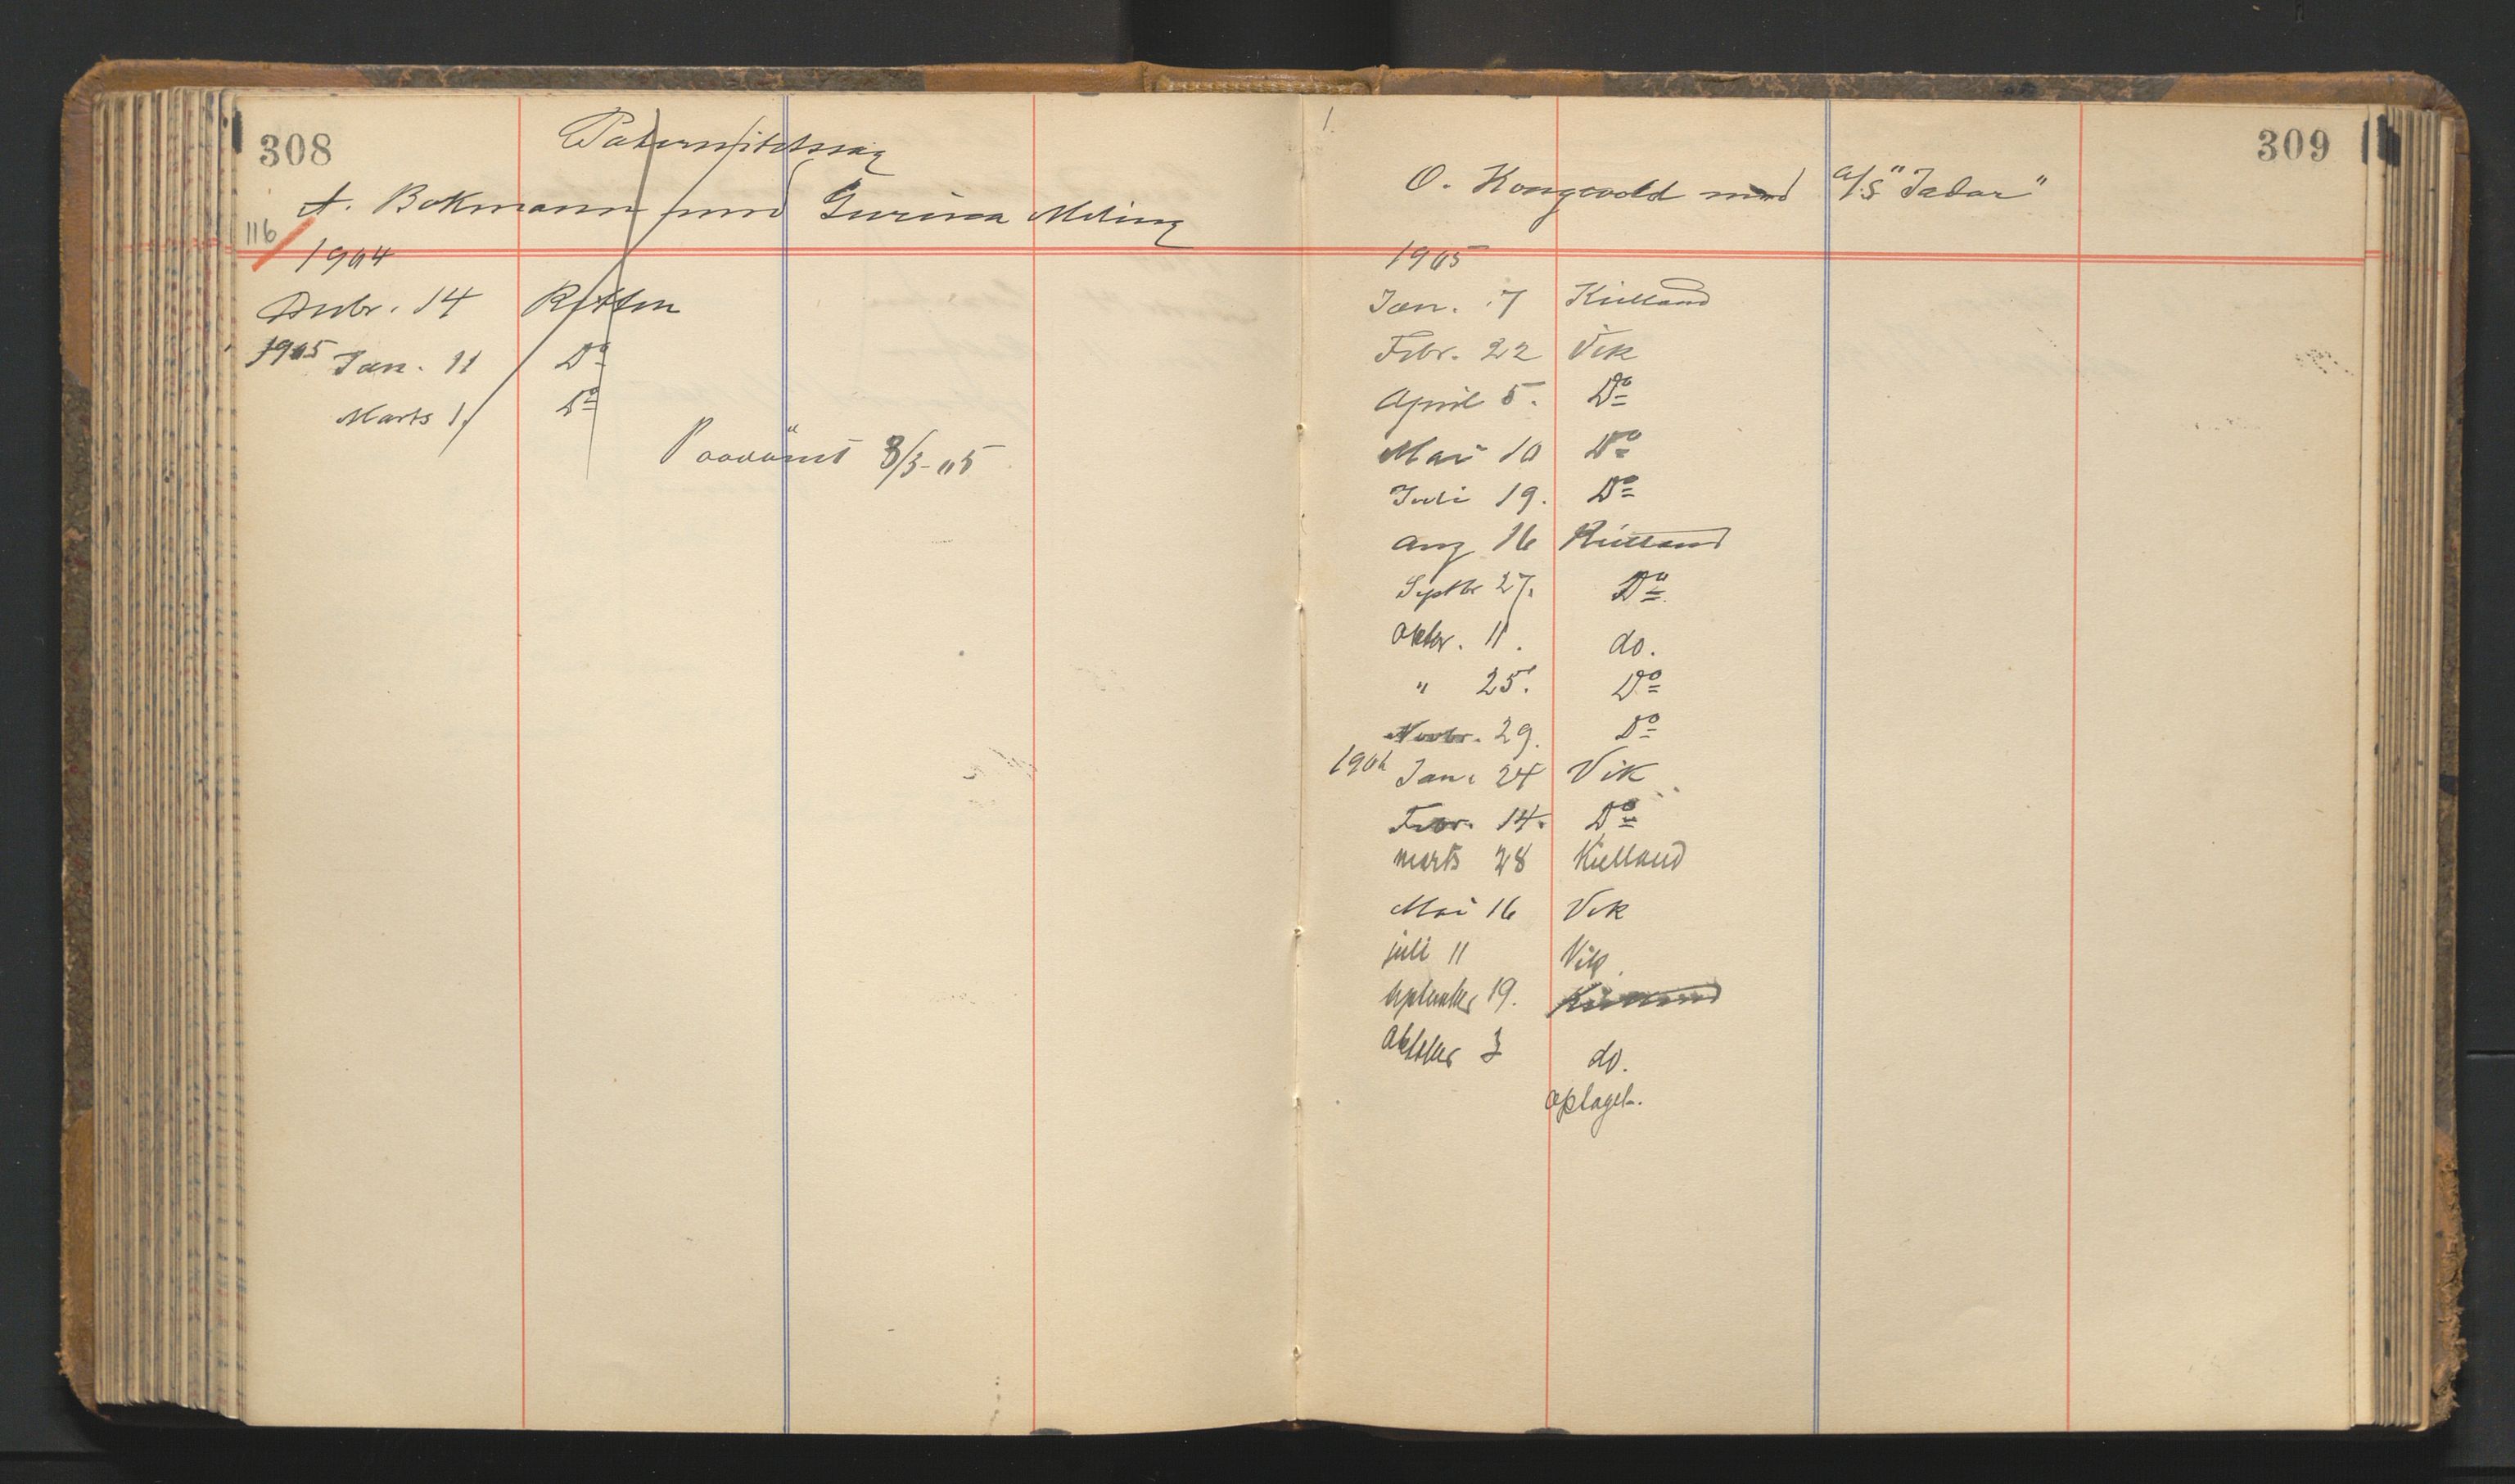 308
Paternitetssag
A. Bokmann mod Gurina Meling
116
1904
Decbr. 14 Retten
1905 Jan. 11 Do
Marts 1. Do
Paadømt 8/3-05
1.
309
O. Kongsvold mod A/S "Jadar"
1905
Jan. 17 Kielland
Febr. 22 Vik
April 5. Do
Mai 10 Do
Juli 19. Do
Aug 16 Kielland
Septbr 27. Do
Oktbr. 11. do.
" 25. Do
Novbr. 29. Do
1906 Jan. 24 Vik
Febr. 14. Do
marts 28 Kielland
Mai 16 Vik
juli 11 Vik.
september 19. Kielland
Oktober 3 do.
optaget.